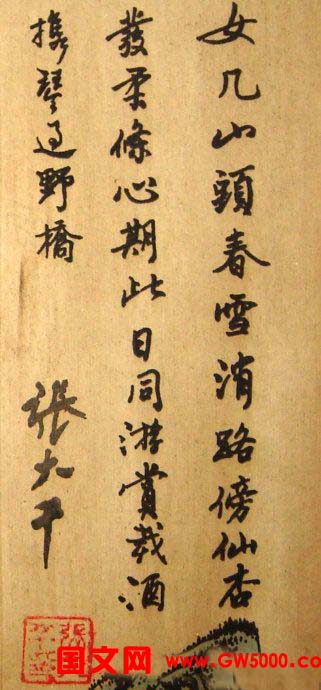 女几山頭春雪消路傍仙杏
發柔條心期此日同游賞載酒
攜琴過野橋
張大千
国文网 www.GW5000.com